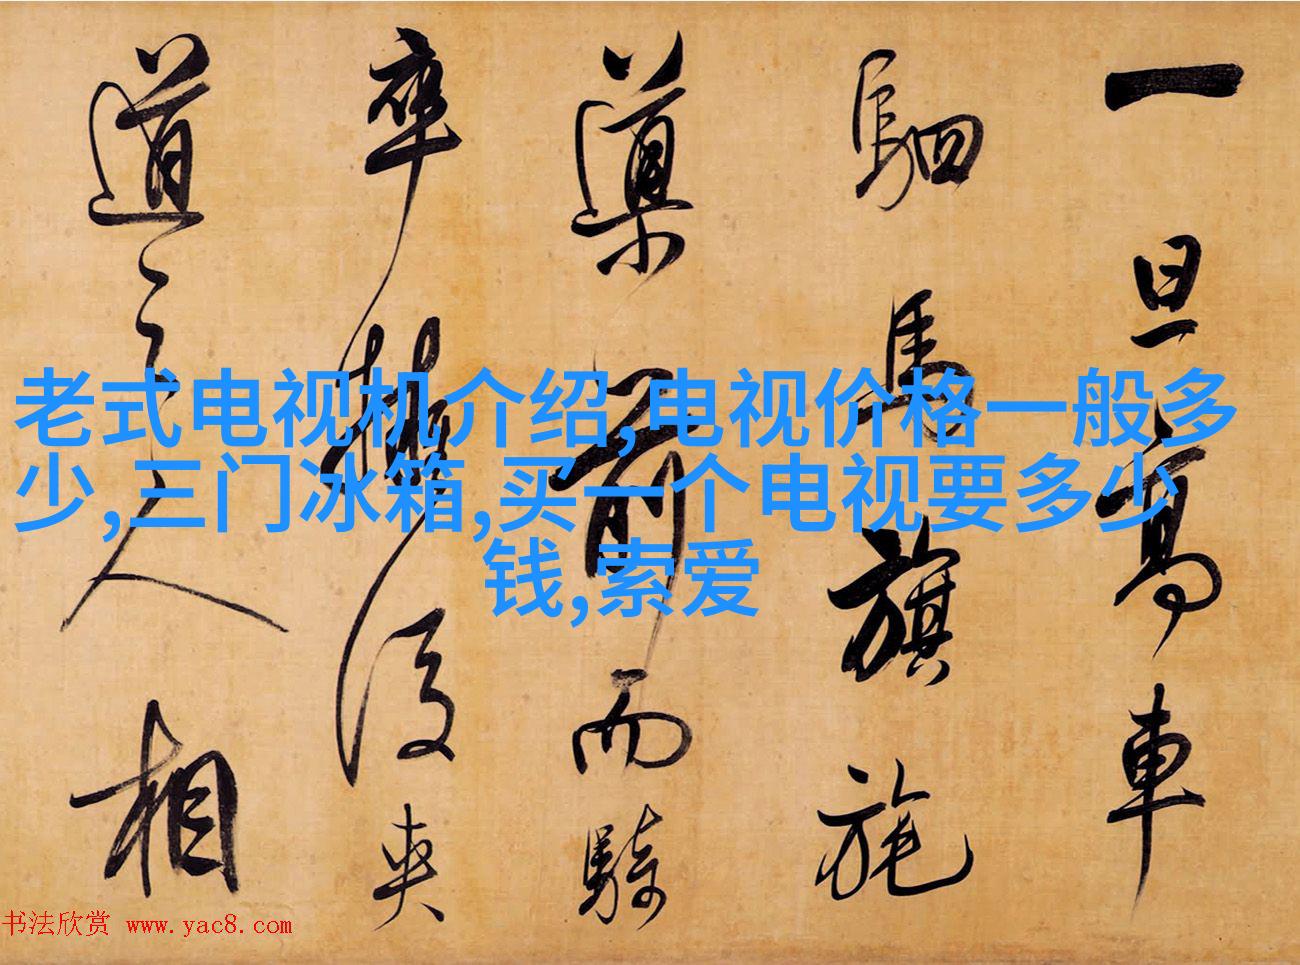 一旦高車
駟馬旗旄
導前而騎
卒擁後夾
道之人相
老式电视机介绍,电视价格一般多
少,三门冰箱,买一个电视要多少
钱,索爱
书法欣赏 www.yac8.com